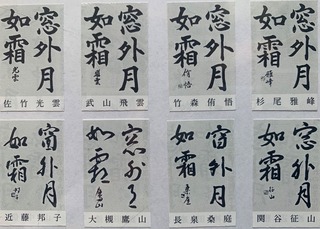 窓外月
如霜
光雲
佐竹光雲
窓外月
如霜
飛雲
武山飛雲
窓外月
如霜
侑悟
竹森侑悟
窓外月
如霜
雅峰
杉尾雅峰
窓外月
如霜
近藤邦子
窓外月
如霜
鷹山
大槻鷹山
窓外月
如霜
長泉桑庭
窓外月
如霜
関谷征山